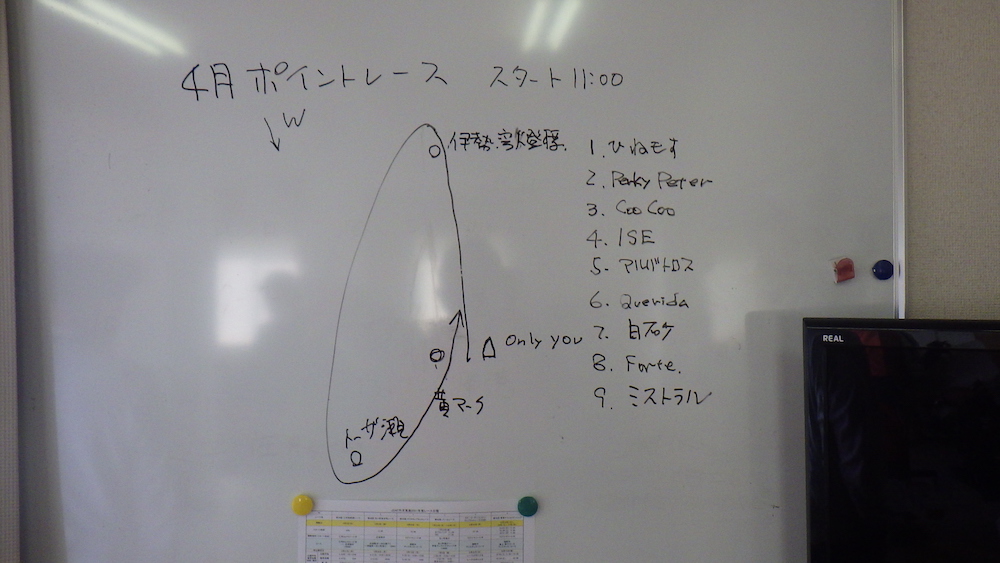 4月 ポイントレース スタート 11:00
W
伊勢湾燈標.
1. ひねもす
2. Perky Peter
3. Coo Coo
4. ISE
5. アルバトロス
6. Querida
Only you
7.
8. Forte.
9. ミストラル
黄マーク
トーザ瀬
REAL